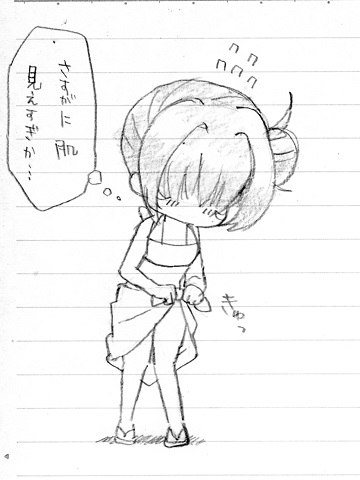 さすがに肌
見えすぎか…
きゅっ